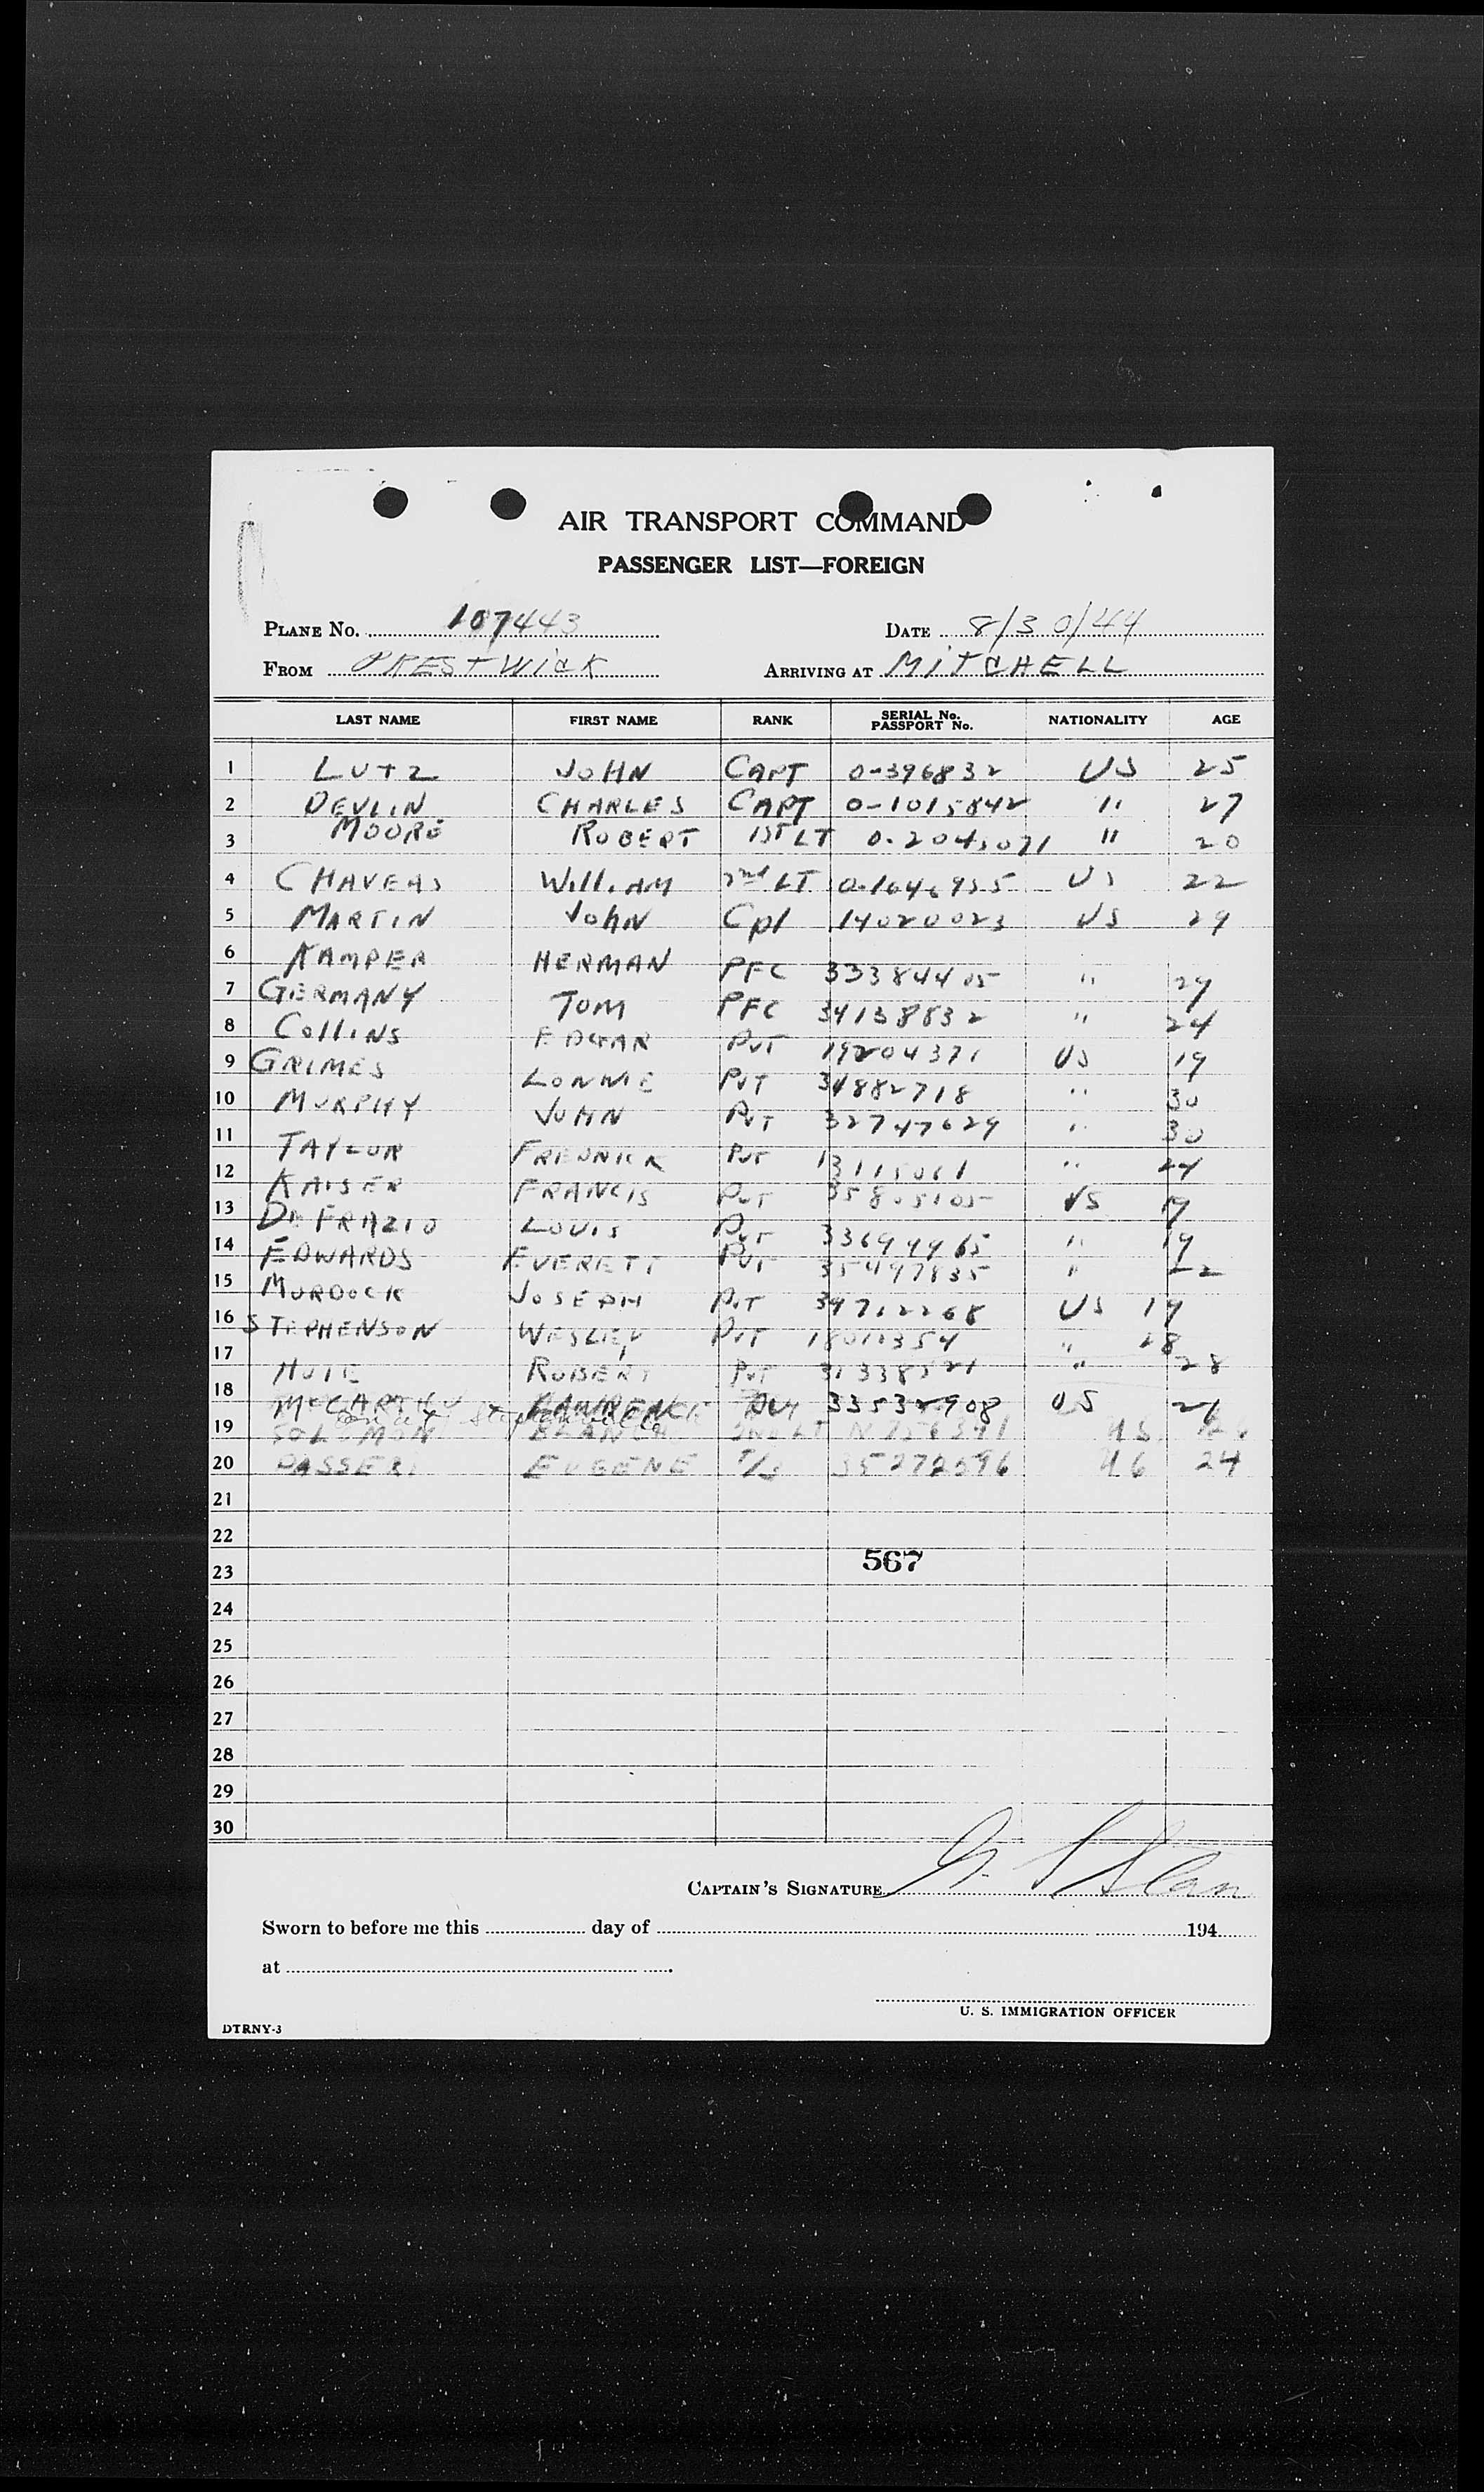 AIR TRANSPORT COMMAND
PASSENGER LIST—FOREIGN
PLANE No. 107443 DATE 8/30/44
FROM PRESTWICK ARRIVING AT MITCHELL
LAST NAME FIRST NAME RANK SERIAL No. PASSPORT No. NATIONALITY AGE
1 LUTZ JOHN CAPT 0-396832 US 25
2 DEVLIN CHARLES CAPT 0-1015842 " 27
3 MOORE ROBERT 1ST LT 0-2045071 " 20
4 CHAVEAS WilliAM 2nd LT US 22
5 MARTIN JohN Cpl 14020023 US 29
6 KAMPER HERMAN PFC 33384405 " 29
7 GERMANY TOM PFC 34138832 " 24
8 CollINS EDGAR PVT 19204371 US 19
9 GRIMES LONNIE PVT 34882718 " 30
10 MURPHY JOHN PVT 32747629 " 30
11 TAYLOR FREDRICK PVT 13115061 " 24
12 KAISER FRANCIS PVT 35805105 US 19
13 DEFRAZIO LOUIS PVT 33699965 " 19
14 EDWARDS EVERETT PVT 35497835 " 22
15 MURDOCK JOSEPH PVT 39712268 US 19
16 STEPHENSON WESLEY PVT 18011354 " 28
17 HUIE ROBERT PVT 31338521 " 28
18 McCARTHY LAWRENCE PVT 33532908 US 21
19 SOLOMON BLANCHE 2ND LT US
20 PASSERI EUGENE 35272596 US 24
21
22
567
23
24
25
26
27
28
29
30
CAPTAIN'S SIGNATURE
Sworn to before me this day of 194
at
U. S. IMMIGRATION OFFICER
DTRNY-3